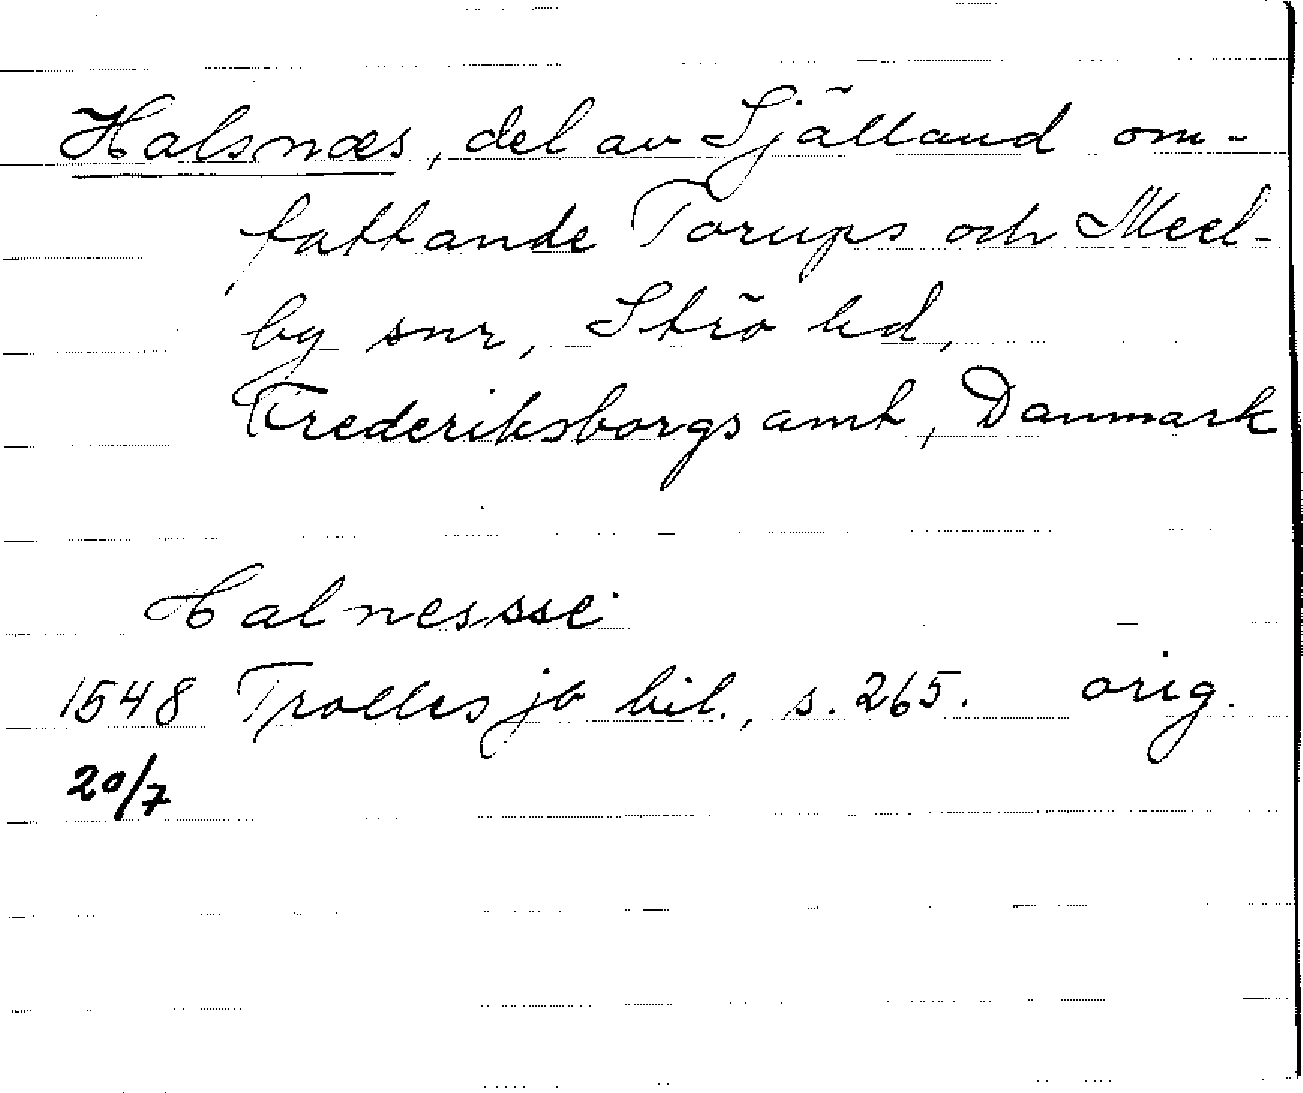 Halsnæs, del av Själland om-
fattande Torups och Meel-
by snr, Strö hd,
Frederiksborgs amt, Danmark
Halnessse
1548 Trolles jb bil., s. 265. orig.
20/7